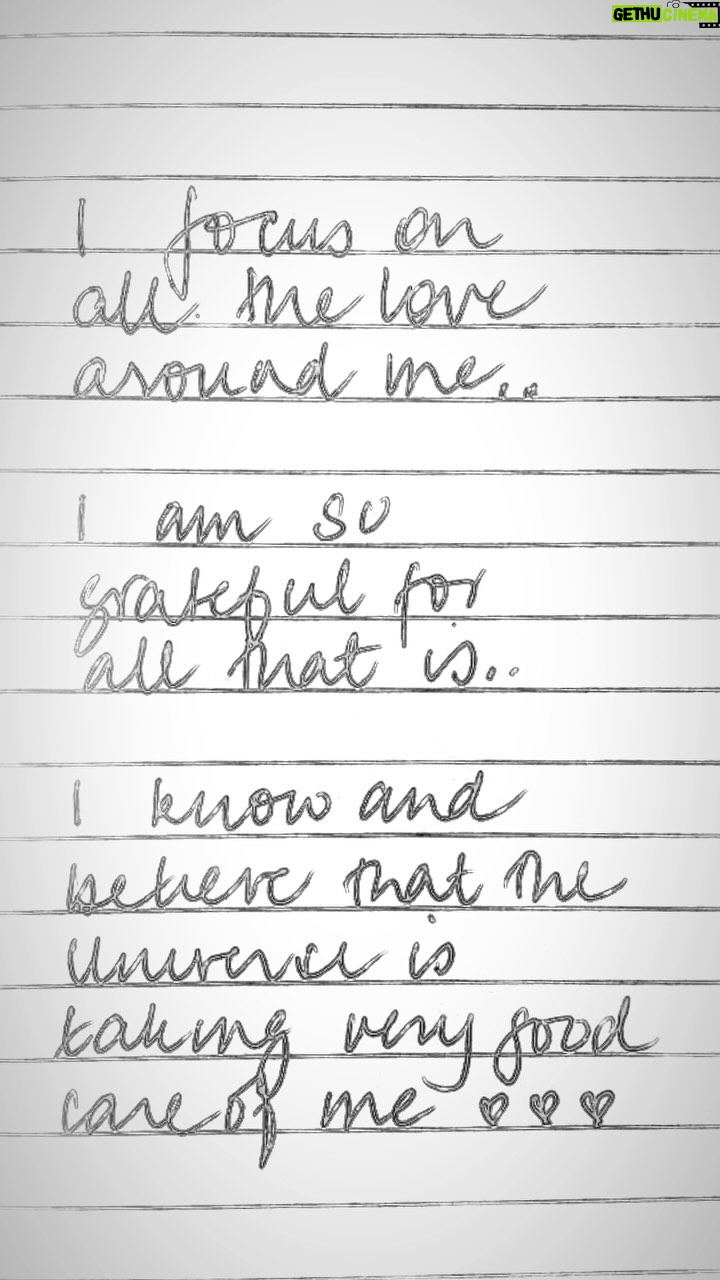 GETHU CINEMA
I focus on
all the love
around me..
I am so
grateful for
all that is..
I know and
believe that the
Universe is
taking very good
care of me ♡♡♡